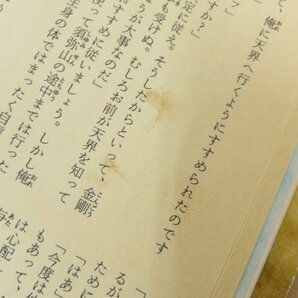 、俺に天界へ行くようにすすめられたのです
」
すか？」
定に従え。そうしたからといって、金剛
も受けぬ。むしろお前が天界を知って
うが大事なのだ」
すすめに従いましょう。しかし俺
使って須弥山の途中までは行った
生身の体ではまったく自信
るが
ために
「はあ
「今度は
もあって、
は心配